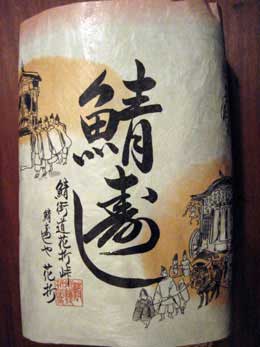 鯖寿し
鯖街道花折峠
鯖寿しや 花折